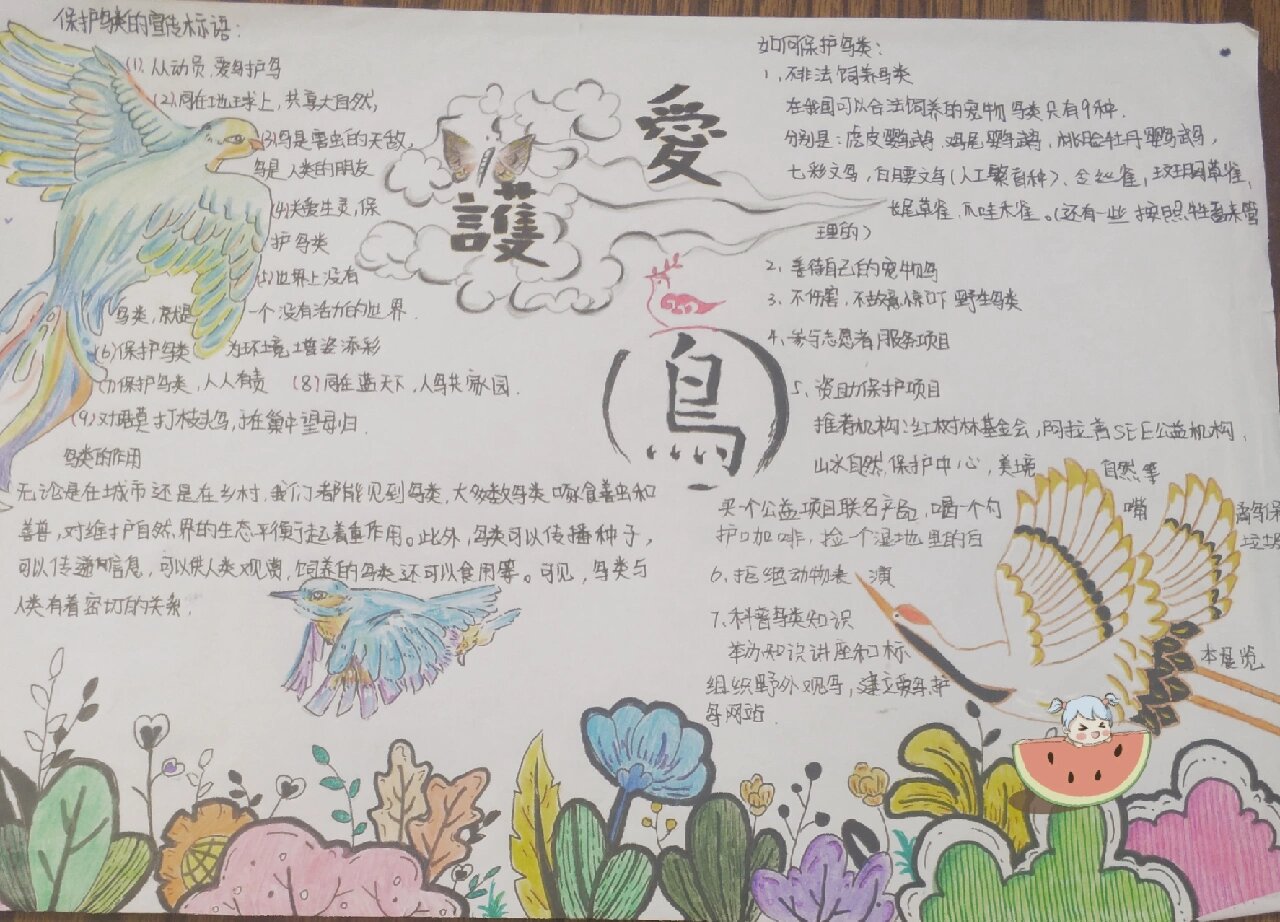 保护鸟类的宣传标语:
(1). 从动员,爱鸟护鸟
(2)同在地球上,共享大自然,
(3)鸟是害虫的天敌,
鸟是人类的朋友
(4)关爱生灵,保
护鸟类
(5)世界上没有
鸟类,就是一个没有活力的世界.
(6)保护鸟类 为环境增姿添彩
(7)保护鸟类,人人有责 (8)同在蓝天下,人鸟共家园.
(9)对 莫打枝头鸟,子在巢中望母归.
鸟类的作用
无论是在城市还是在乡村,我们都能见到鸟类,大多数鸟类啄食害虫和
害兽,对维护自然界的生态平衡起着重作用。此外,鸟类可以传播种子,
可以传递信息,可以供人类观赏,饲养的鸟类还可以食用等。可见,鸟类与
人类有着密切的关系.
愛
護
鳥
如何保护鸟类:
1、不非法饲养鸟类
在我国可以合法饲养的宠物鸟类只有9种.
分别是:虎皮鹦鹉,鸡尾鹦鹉,桃脸牡丹鹦鹉,
七彩文鸟,白腰文鸟(人工繁育种)、金丝雀,斑胸草雀,
长尾草雀,爪哇禾雀。(还有一些按照牲畜来管
理的)
2、善待自己的宠物鸟
3、不伤害,不故意惊吓野生鸟类
4、参与志愿者服务项目
5、资助保护项目
推荐机构:红树林基金会,阿拉善SEE公益机构,
山水自然保护中心,美境自然等
买个公益项目联名产品,喝一个勺嘴鹬鸟保
护咖啡,捡个湿地里的白 垃圾
6、拒绝动物表演
7、科普鸟类知识
举办知识讲座和标本展览
组织野外观鸟,建立爱鸟护
鸟网站.